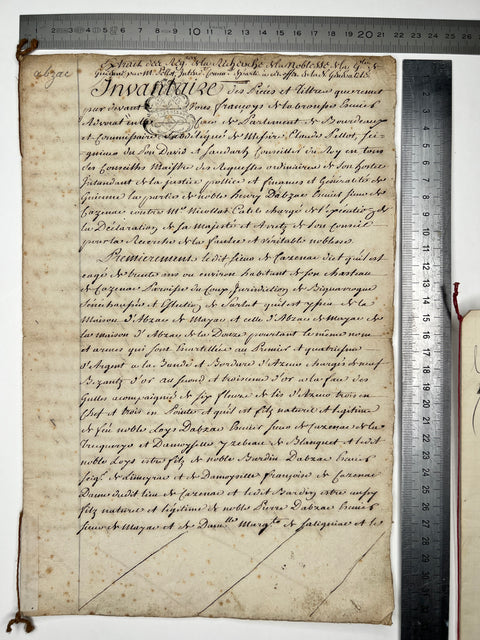 abzac
Extrait des Reg.res de la Recherche de la Noblesse de la G.lité de
Guienne par Mr. Pellot, Intend.
Inventaire des Pieces et Tiltres que remet
par devant Nous françoys de Labrousse Ecuier
Advocat en la Cour de Parlement de Bourdeaux
et Commissaire Subdelegué de Messire Claude Pellot, sei-
gneur du Port David et Sandars Conseiller du Roy en tous
ses Conseilhs Maistre des Requestes ordinaire de son Hostel
Intandant de la Justice pollice et finances et Generalité de
Guienne la partie de noble henry Dabzac Ecuier sieur de
Cazenac contre Mr. Nicollas Catel chargé de l'execution de
la Declaration de sa Majesté et Arrets de son Conseil
pour la Recerche de la fausse et veritable noblesse
Premierement ledit sieur de Cazenac dict qu'il est
eagé de trente ans ou environ habitant de son chasteau
de Cazenac Parroisse du Coux Jurisdiction de Bigaroque
Seneschaussée et Eslection de Sarlat qu'il est yssu de la
Maison d'Abzac de Mayac et celle d'Abzac de Mayac de
la maison d'Abzac de la Douze pourtant le mesme nom
et armes qui sont Ecartellées au Premier et quatriesme
d'Argent a la Bande et Bordure d'Azeur chargés de neuf
Bezantz d'or au second et troisiesme d'or a la face de
Gulles acompaignée de six fleurs de lis d'Azeur trois en
Chef et trois en Pointe et qu'il est filz naturel et legitime
de feu noble Loys Dabzac Ecuier sieur de Cazenac de la
et Damoyselle yzabeau de Blanquet et ledit
noble Loys estre filz de noble Bardin Dabzac Ecuier
seigr. de Limeyrac et de Damoyselle françoise de Cazenac
Dame dudit lieu de Cazenac et ledit Bardin estre aussy
filz naturel et legitime de noble Pierre Dabzac Ecuier
sieur de Mayac et de Damlle. Margte. de Salignac et le